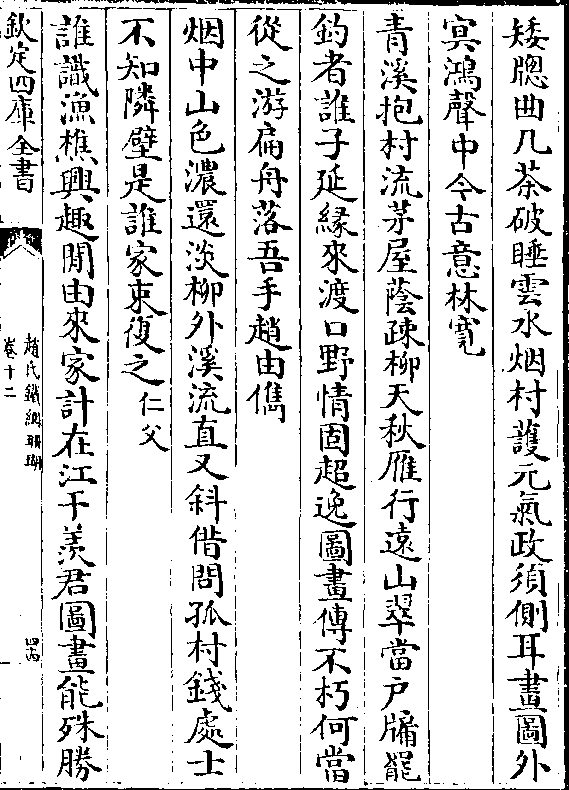 矮牕曲几茶破睡雲水烟村䕶元氣政須側耳畫圖外
㝠鴻聲中今古意林寛
青溪抱村流茅屋蔭疎柳天秋雁行遠山翠當户牖罷
釣者誰子延縁來渡口野情固超逸圖畫傳不朽何當
從之游扁舟落吾手趙由儁
烟中山色濃還淡柳外溪流直又斜借問孤村錢處士
不知隣壁是誰家束復之仁父
誰識漁樵興趣閒由來家計在江干羨君圖畫能殊勝
欽定四庫全書
趙氏鐵網珊瑚
卷十二